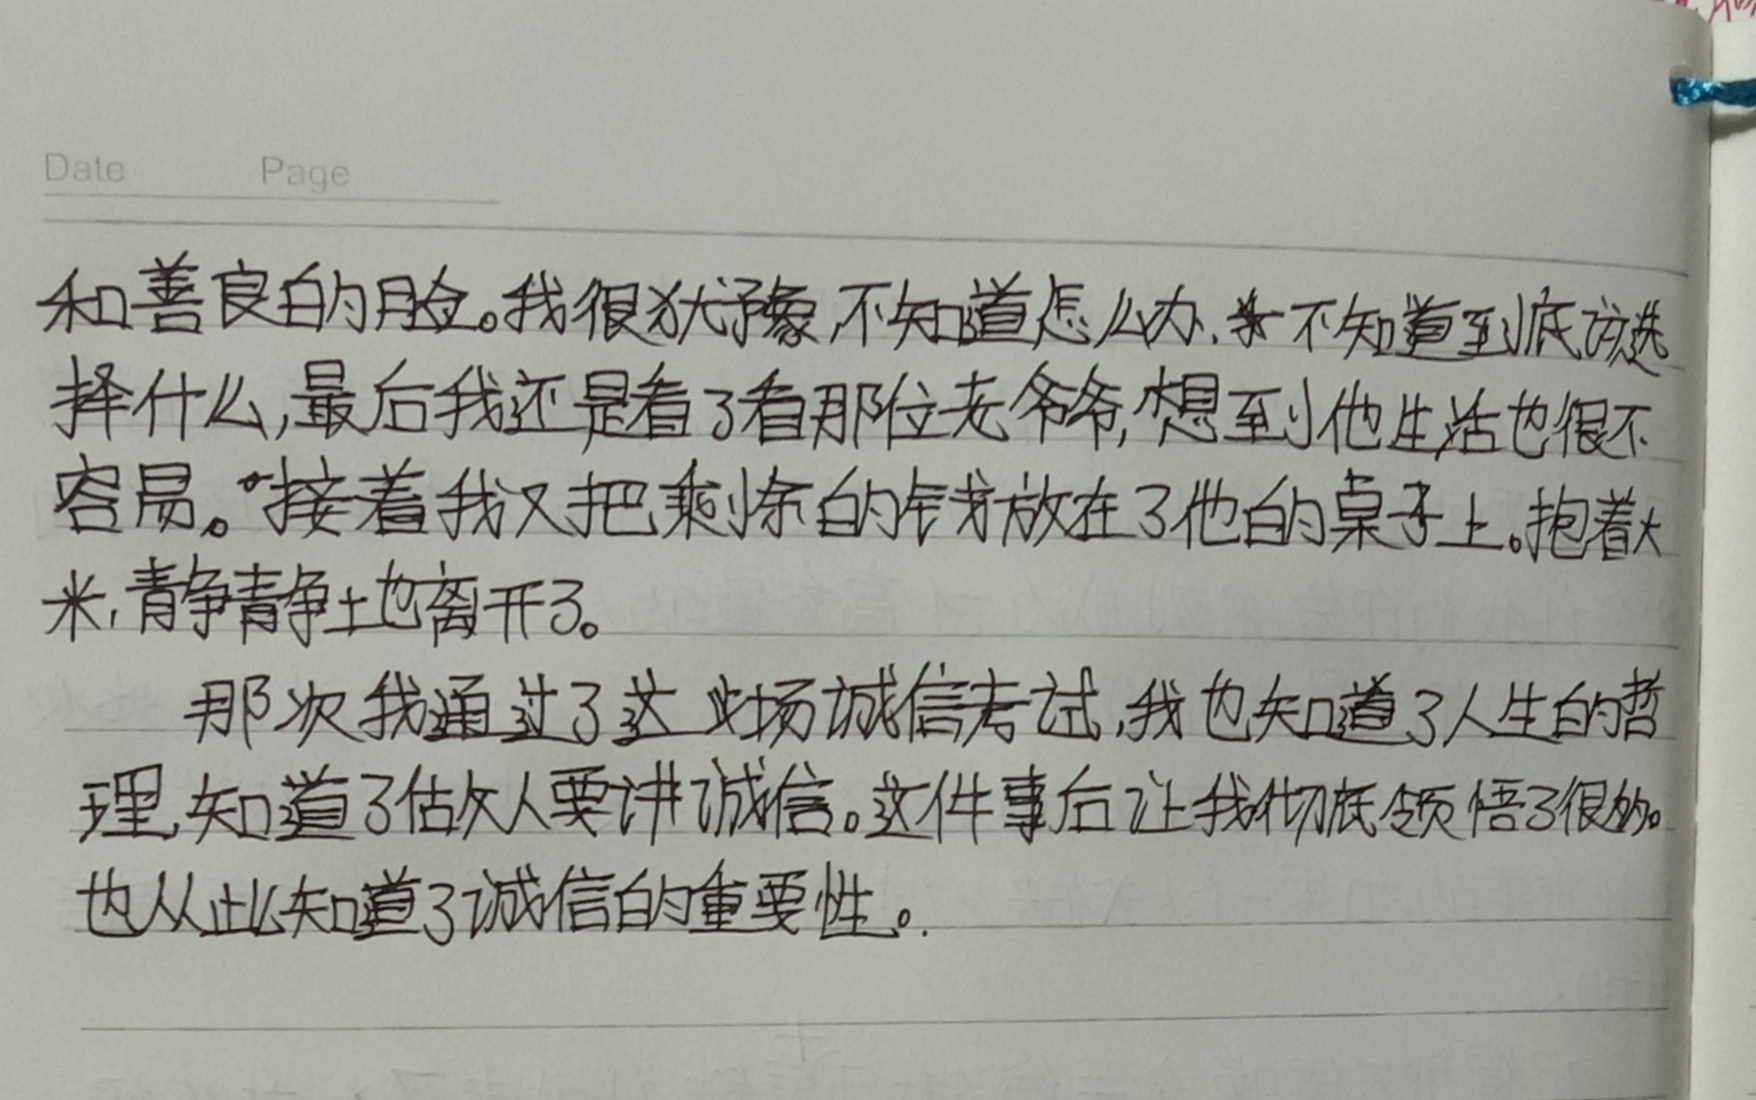 Date Page
和善良的脸。我很犹豫,不知道怎么办、不知道到底该选
择什么,最后我还是看了看那位老爷爷,想到他生活也很不
容易。接着我又把剩余的钱放在了他的桌子上。抱着大
米,静静地离开了。
那次我通过了这场诚信考试,我也知道了人生的哲
理,知道了做人要讲诚信。这件事后让我彻底领悟了很多。
也从此知道了诚信的重要性。